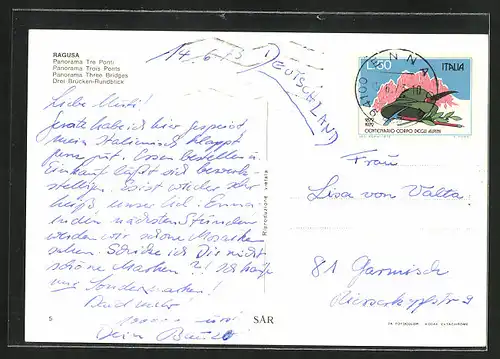 RAGUSA
Panorama Tre Ponti
Panorama Trois Ponts
Panorama Three Bridges
Drei Brücken-Rundblick
14.6.73
DEUTSCHLAND
L.50 ITALIA
ENNA
CENTENARIO CORPO DEGLI ALPINI
habe ich hier gespeist,
mein Italienisch klappt
ganz gut. Essen bestellen u.
Einkauf läßt sich
Es ist wieder sehr
heiß unser Enna
in den nächsten Stunden
werden wir schöne Mosaiken
sehen. Schicke ich Dir nicht
schöne Marken?! Ich kaufe
nur Sondermarken!
Dein
Riproduzione vietata
Frau
Lisa von Valta
81 Garmisch
5
SAR